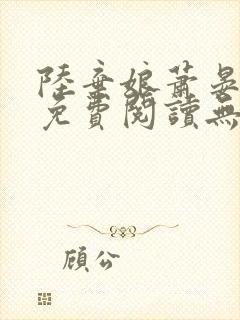 陸棄娘蕭晏
免費閱讀無
顧公